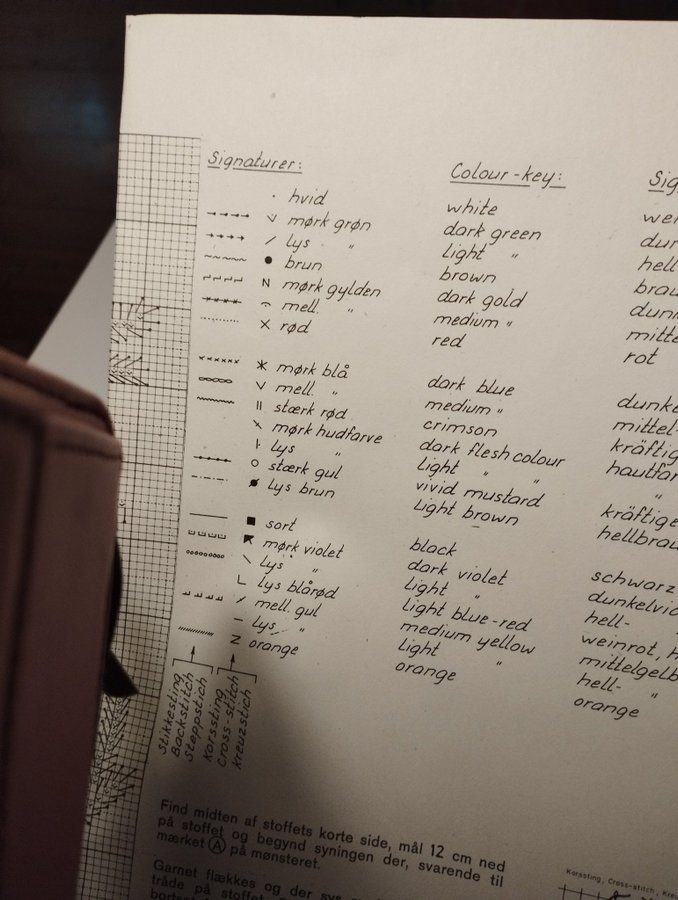 Signaturer:
hvid
mørk grøn
lys "
brun
mørk gylden
mell. "
rød
mørk blå
mell. "
stærk rød
mørk hudfarve
lys "
stærk gul
lys brun
sort
mørk violet
lys "
lys blårød
mell. gul
lys "
orange
Stikkesting
Backstitch
Steppstich
Korssting
Cross-stitch
Kreuzstich
Colour-key:
white
dark green
light "
brown
dark gold
medium "
red
dark blue
medium "
crimson
dark flesh colour
light " "
vivid mustard
light brown
black
dark violet
light "
light blue-red
medium yellow
light "
orange
Sig
wei
dun
hell
brau
dun
mitte
rot
dunke
mittel-
kräftig
hautfar
"
kräftige
hellbrau
schwarz
dunkelvio
hell-
weinrot, h
mittelgelb
hell- "
orange
Find midten af stoffets korte side, mål 12 cm ned
på stoffet og begynd syningen der, svarende til
mærket A på mønsteret.
Garnet flækkes og der sys
tråde på stoffe
Korssting, Cross-stitch, Kreu